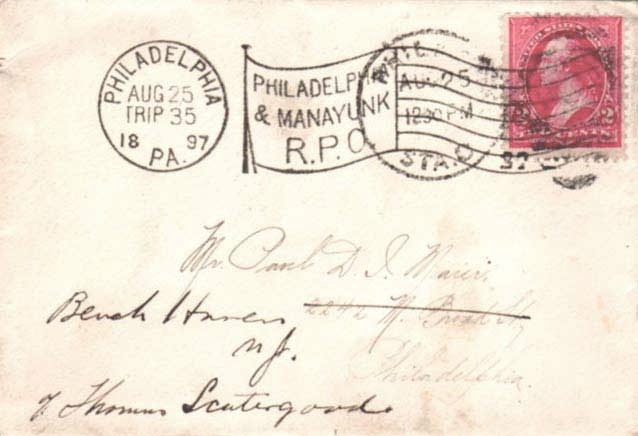 PHILADELPHIA
AUG 25
TRIP 35
18 97
PA.
PHILADELPHIA
& MANAYUNK
R.P.O
AUG 25
12 30 PM
STA. O
97
Mr. Paul D. I. Maier,
2242 N. Broad St,
Philadelphia.
Beach Haven
N.J.
℅ Thomas Scatergood